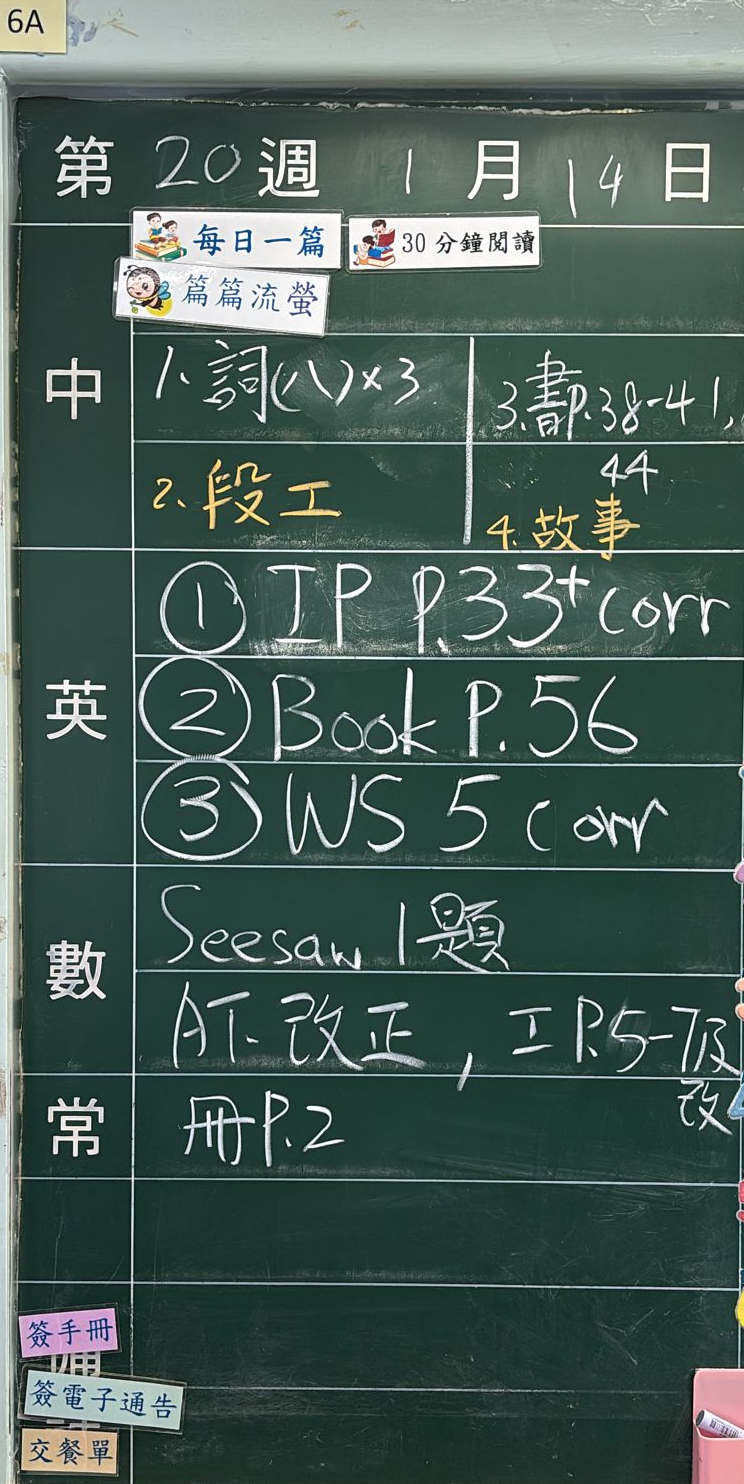 6A
第 20 週 1 月 14 日
每日一篇 30分鐘閱讀
篇篇流螢
中
1. 詞(八)×3
2. 段工
3. 書P.38-41,
44
4. 故事
英
① IP P.33+corr
② Book P.56
③ WS 5 corr
數
Seesaw 1題
AT. 改正, 工P.5-7及
改
常
冊P.2
簽手冊
簽電子通告
交餐單